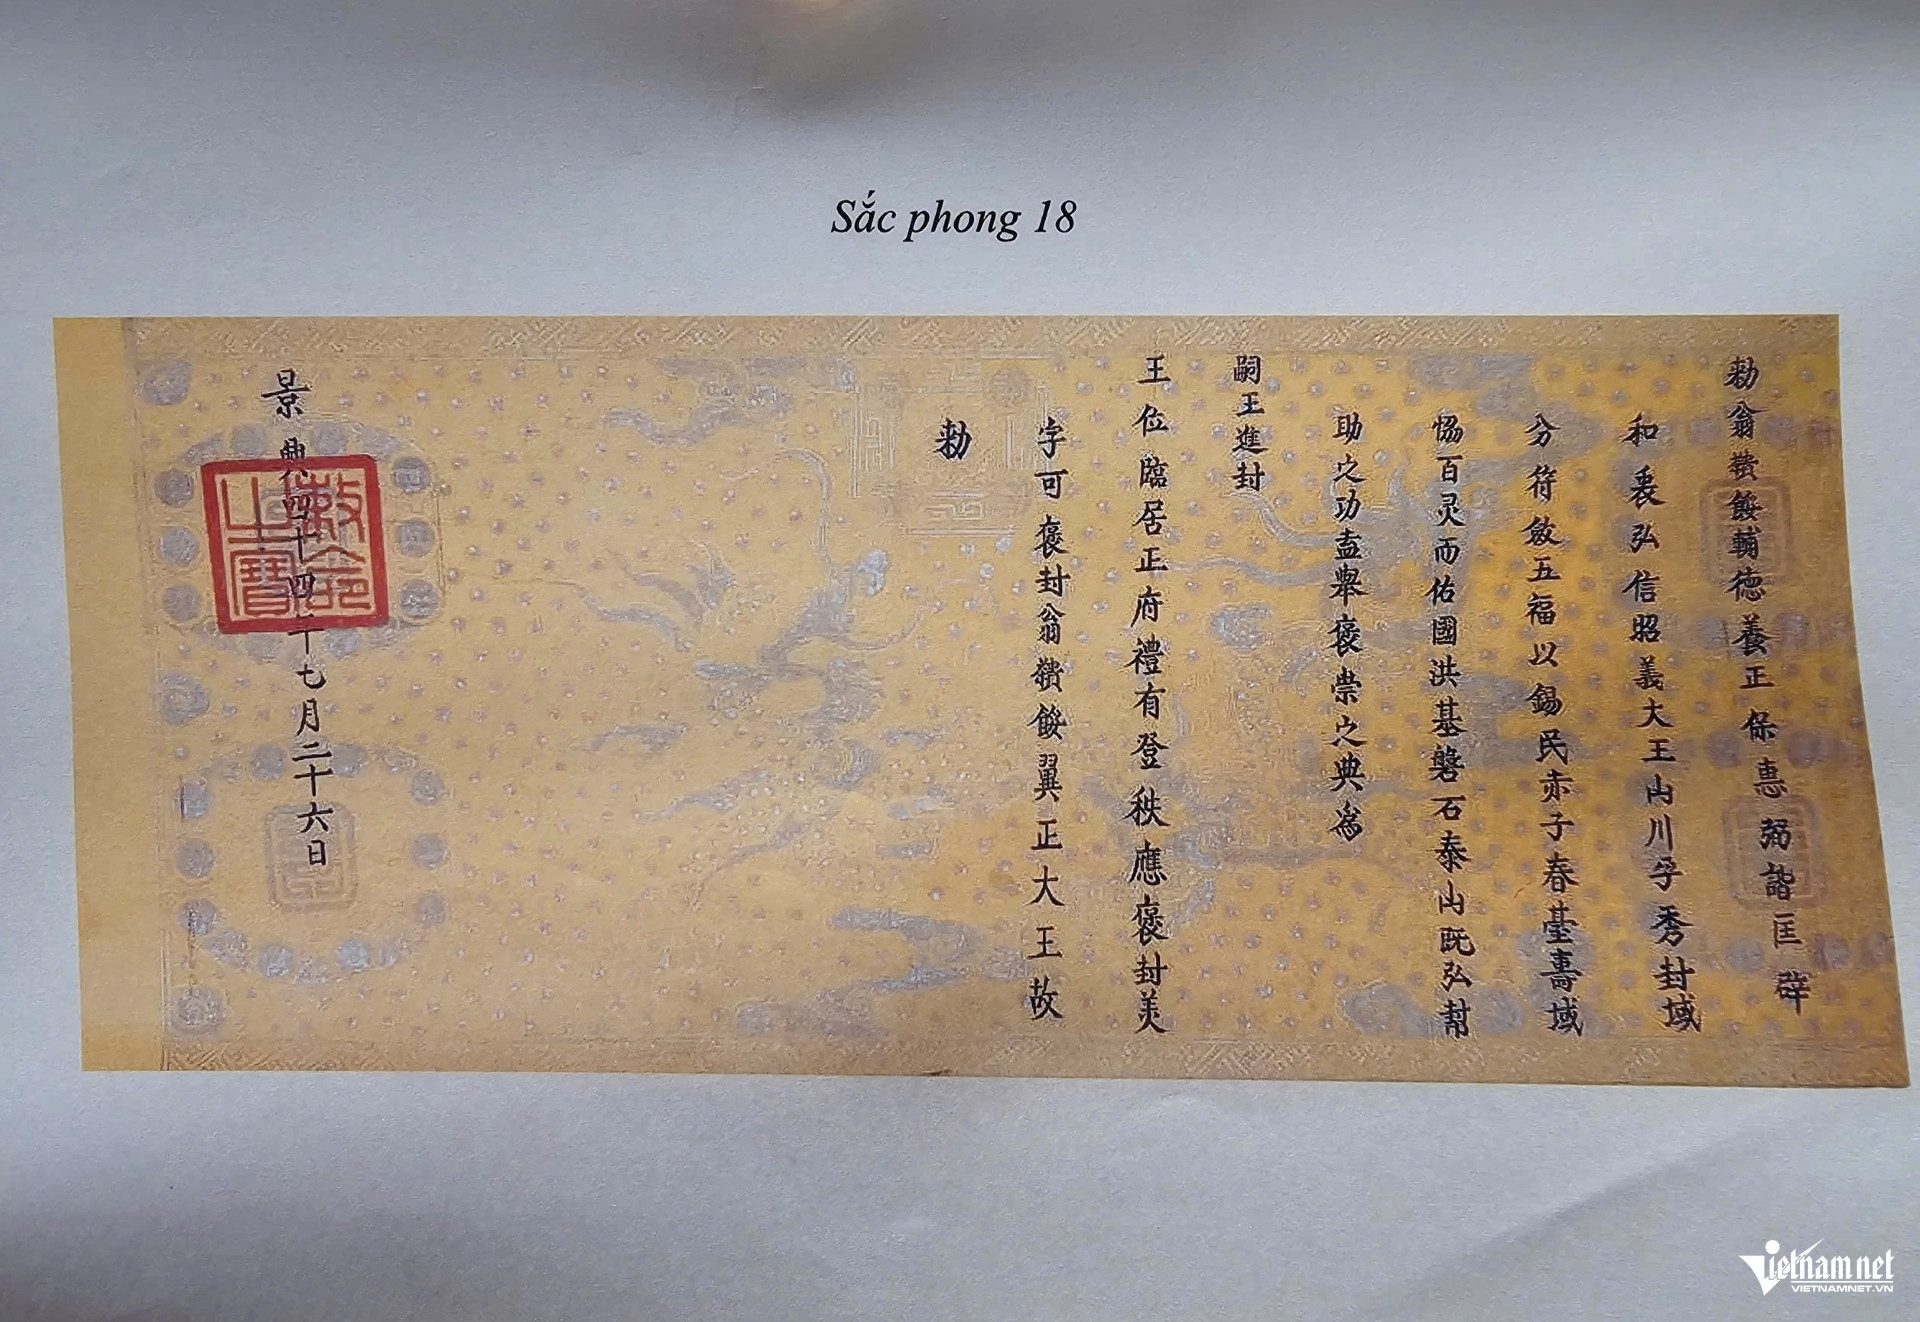 Sắc phong 18
勅翁犢餕輔德養正保惠弼諧匡辟
和衷弘信昭義大王山川孚秀封域
分符斂五福以錫民赤子春臺壽域
恊百灵而佑國洪基磐石泰山既弘幇
助之功盍舉褒崇之典為
嗣王進封
王位臨居正府禮有登秩應褒封美
字可褒封翁犢餕翼正大王故
勅
景興四十四年七月二十六日
敕命之寶
Vietnam net
VIETNAMNET.VN